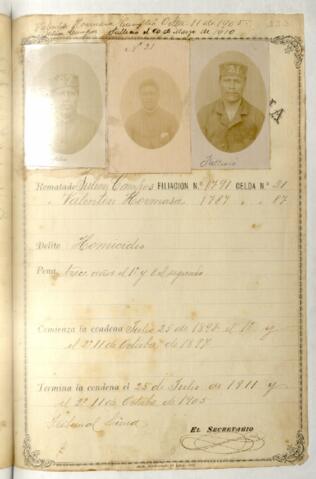 Valentin Hermosa Cumplió Octbr. 11 de 1905.
Julian Campos Falleció el 10 de Marzo de 1910
Nº 21
Falleció
Rematado Julian Campos FILIACION N.º 1791 CELDA N.º 21
" Valentin Hermosa 1787 " 87
Delito Homicidio
Pena trece años el 1º y 8 el segundo
Comienza la condena Julio 25 de 1898 el 1º y
el 2º 11 de Octubre de 1897
Termina la condena el 25 de Julio de 1911 y
el 2º 11 de Octubre de 1905
Tribunal Lima
EL SECRETARIO